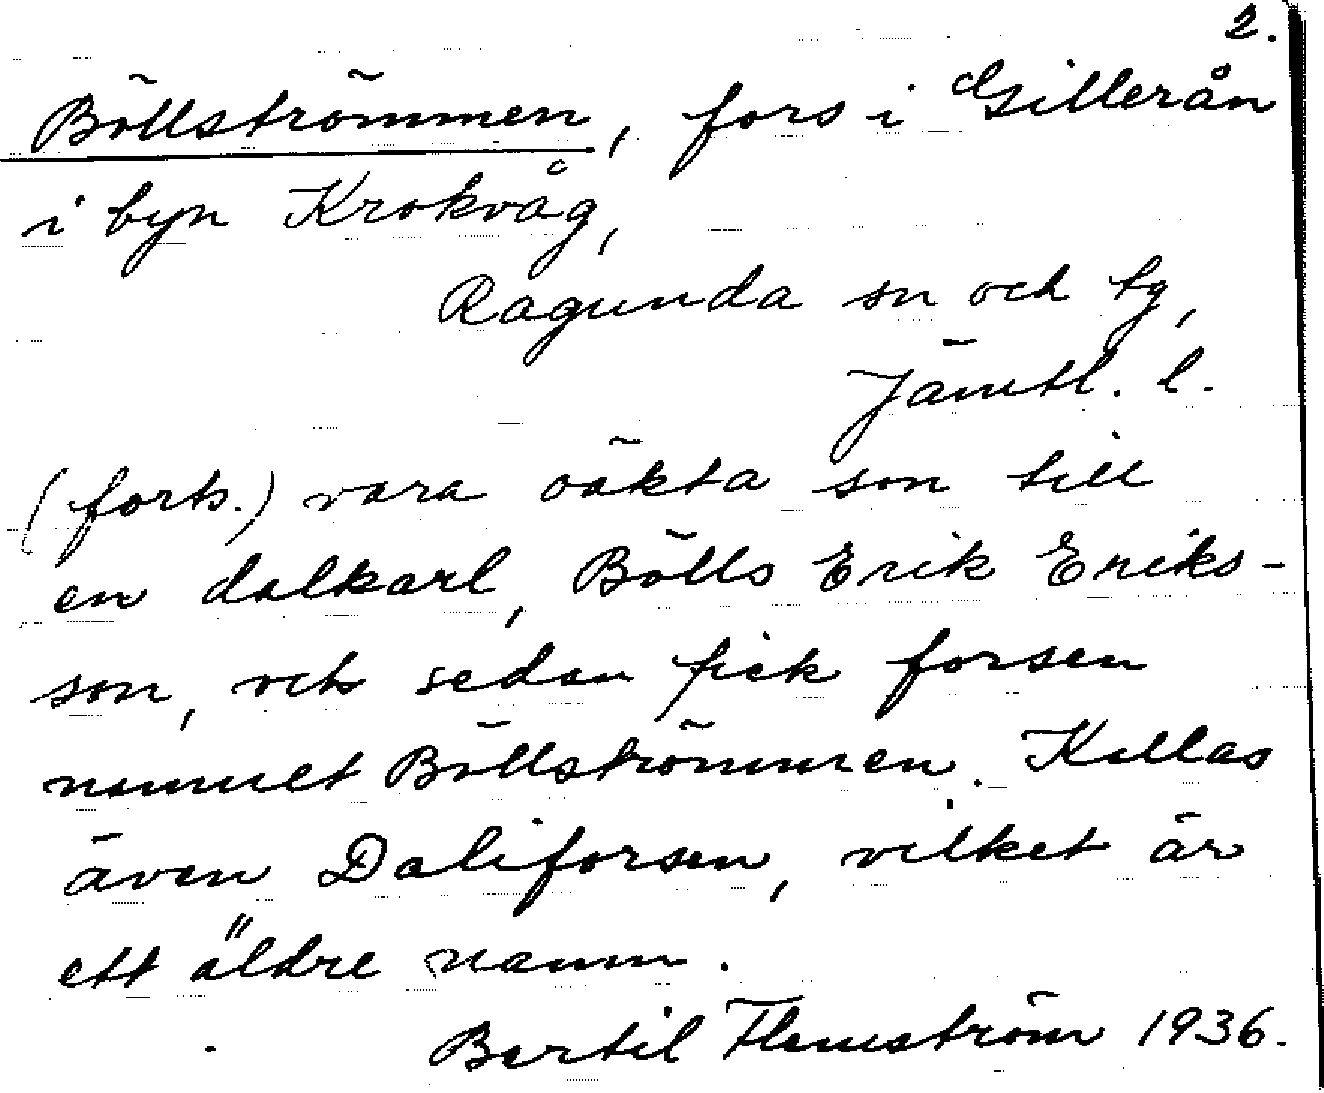 2.
Böllströmmen, fors i Gillerån
i byn Krokvåg,
Ragunda sn och tg,
Jämtl. l.
(forts.) vara oäkta son till
en dalkarl, Bölls Erik Eriks-
son, och sedan fick forsen
namnet Böllströmmen. Kallas
även Daliforsen, vilket är
ett äldre namn.
Bertil Flemström 1936.